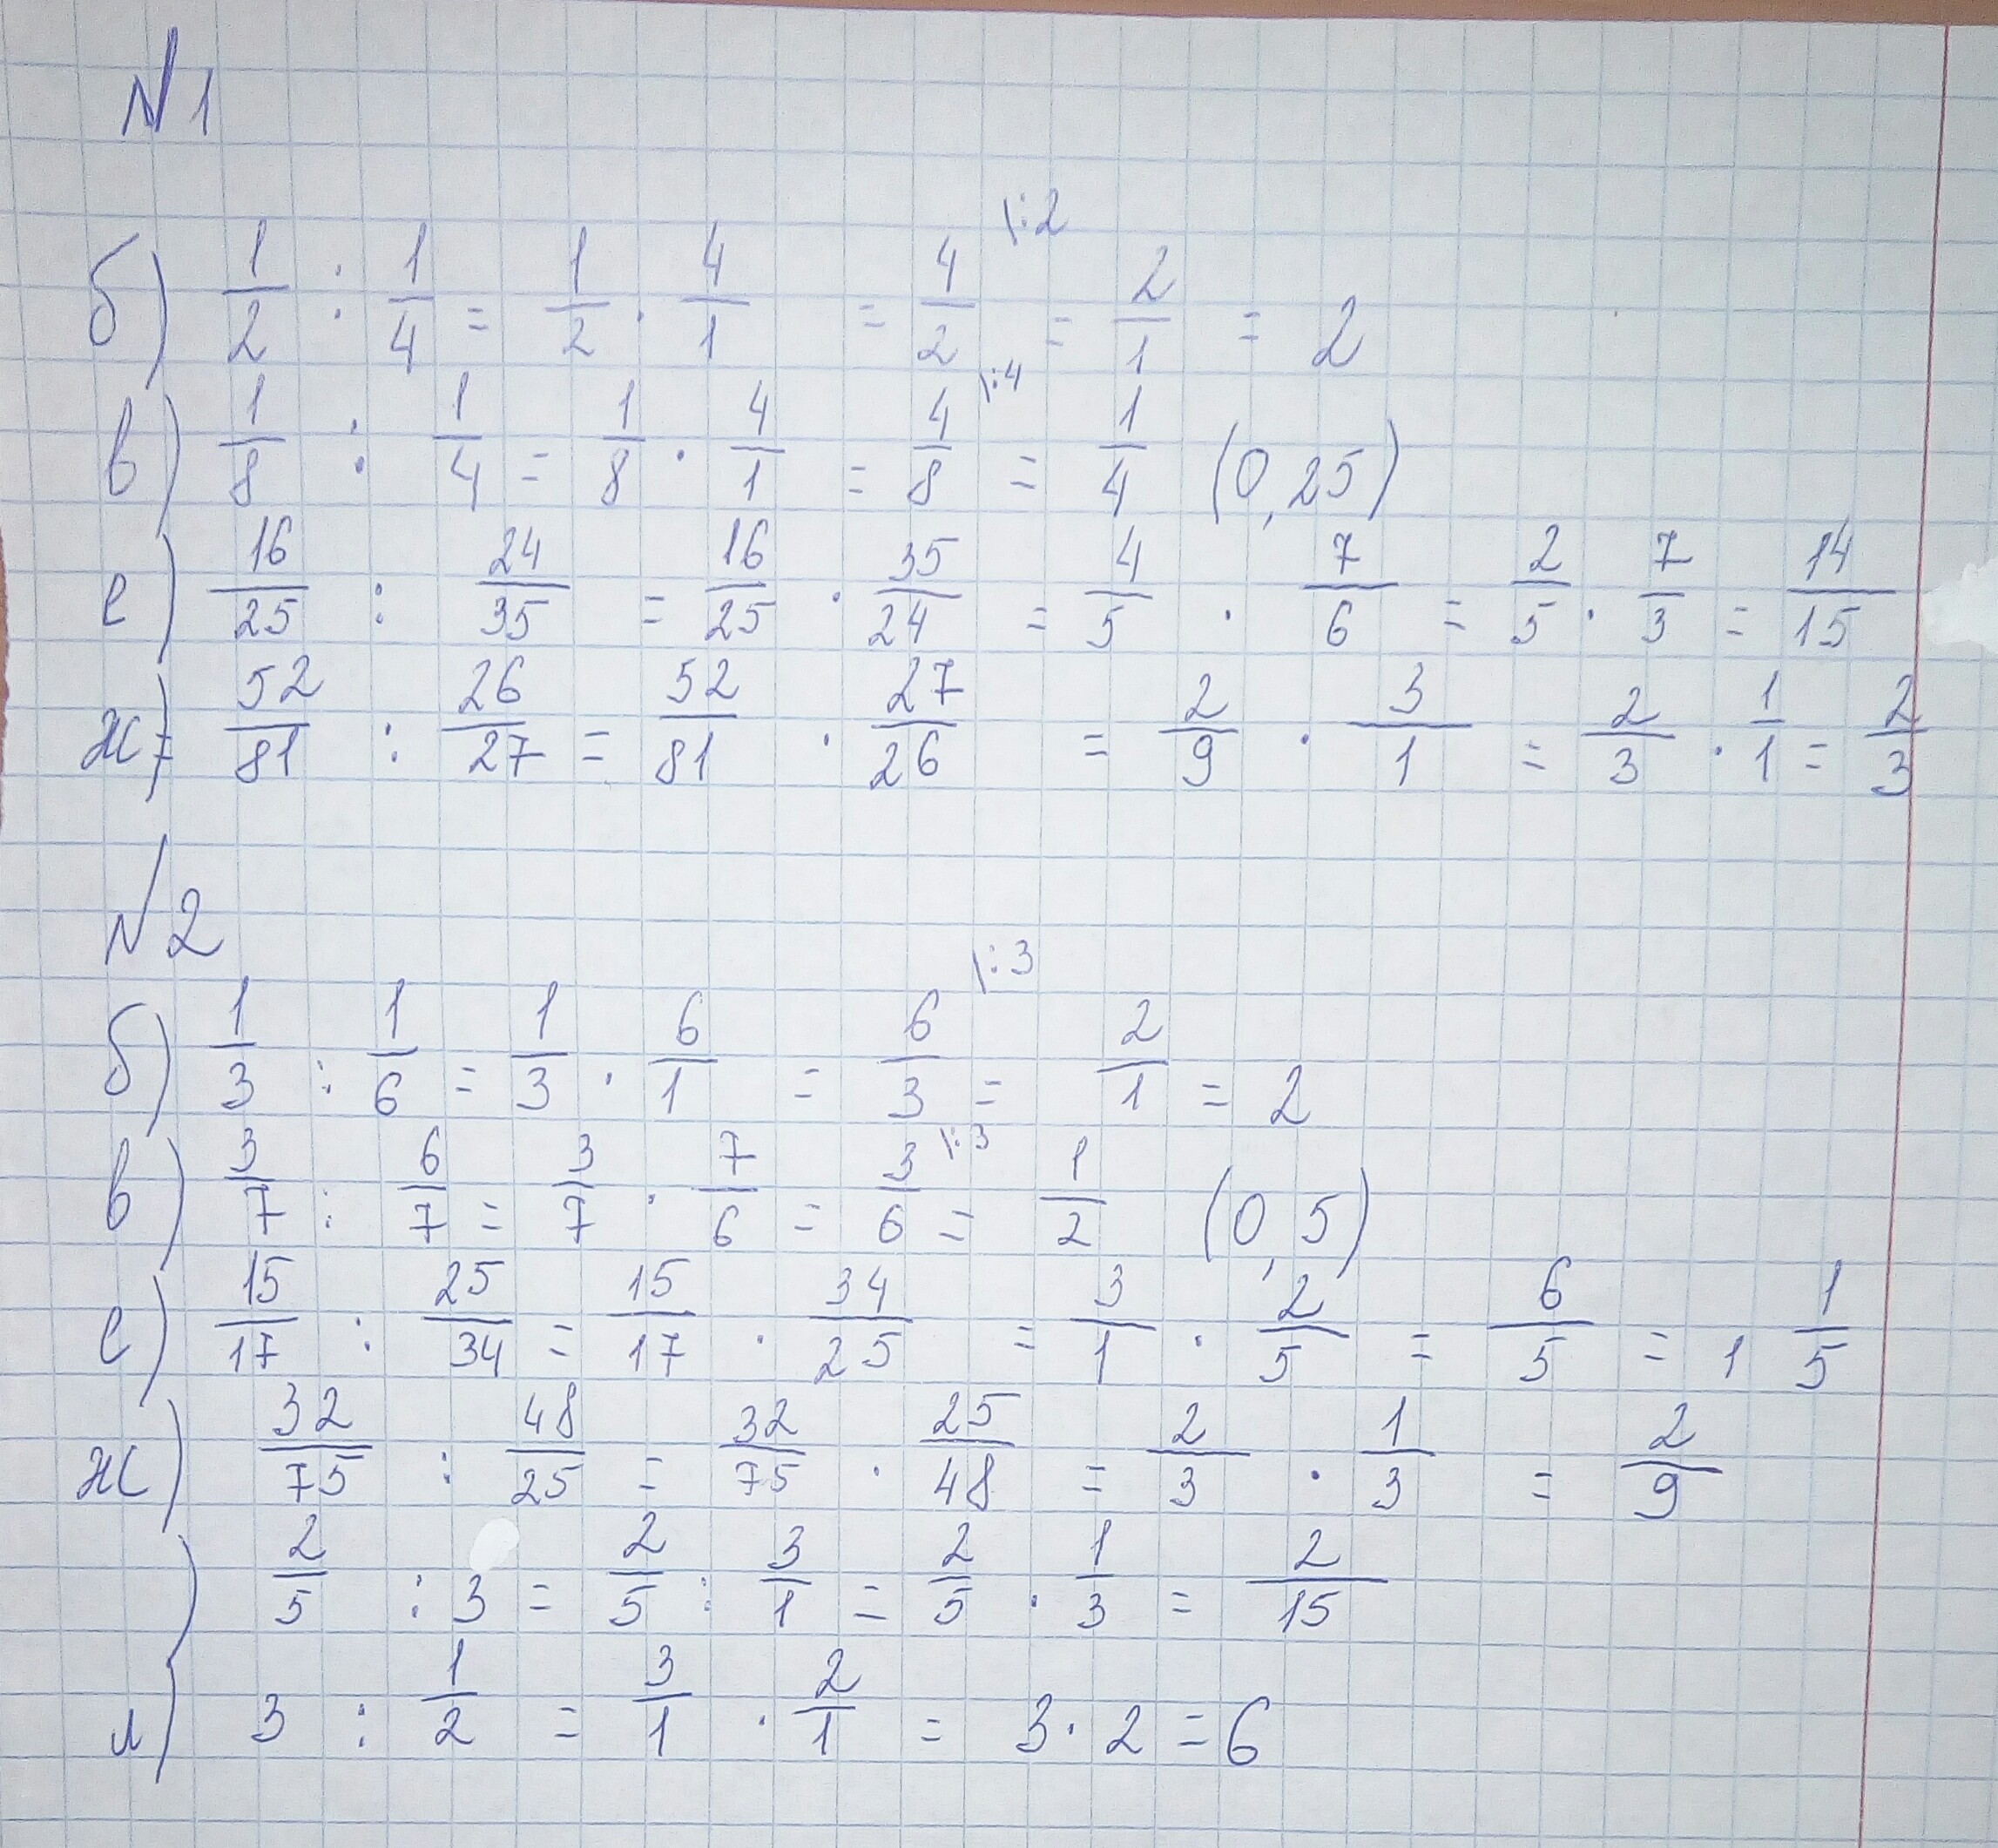 №1
\:2
б) 1/2 : 1/4 = 1/2 · 4/1 = 4/2 = 2/1 = 2
\:4
в) 1/8 : 1/4 = 1/8 · 4/1 = 4/8 = 1/4 (0,25)
е) 16/25 : 24/35 = 16/25 · 35/24 = 4/5 · 7/6 = 2/5 · 7/3 = 14/15
ж) 52/81 : 26/27 = 52/81 · 27/26 = 2/9 · 3/1 = 2/3 · 1/1 = 2/3
№2
\:3
б) 1/3 : 1/6 = 1/3 · 6/1 = 6/3 = 2/1 = 2
\:3
в) 3/7 : 6/7 = 3/7 · 7/6 = 3/6 = 1/2 (0,5)
е) 15/17 : 25/34 = 15/17 · 34/25 = 3/1 · 2/5 = 6/5 = 1 1/5
ж) 32/75 : 48/25 = 32/75 · 25/48 = 2/3 · 1/3 = 2/9
2/5 : 3 = 2/5 : 3/1 = 2/5 · 1/3 = 2/15
л) 3 : 1/2 = 3/1 · 2/1 = 3 · 2 = 6